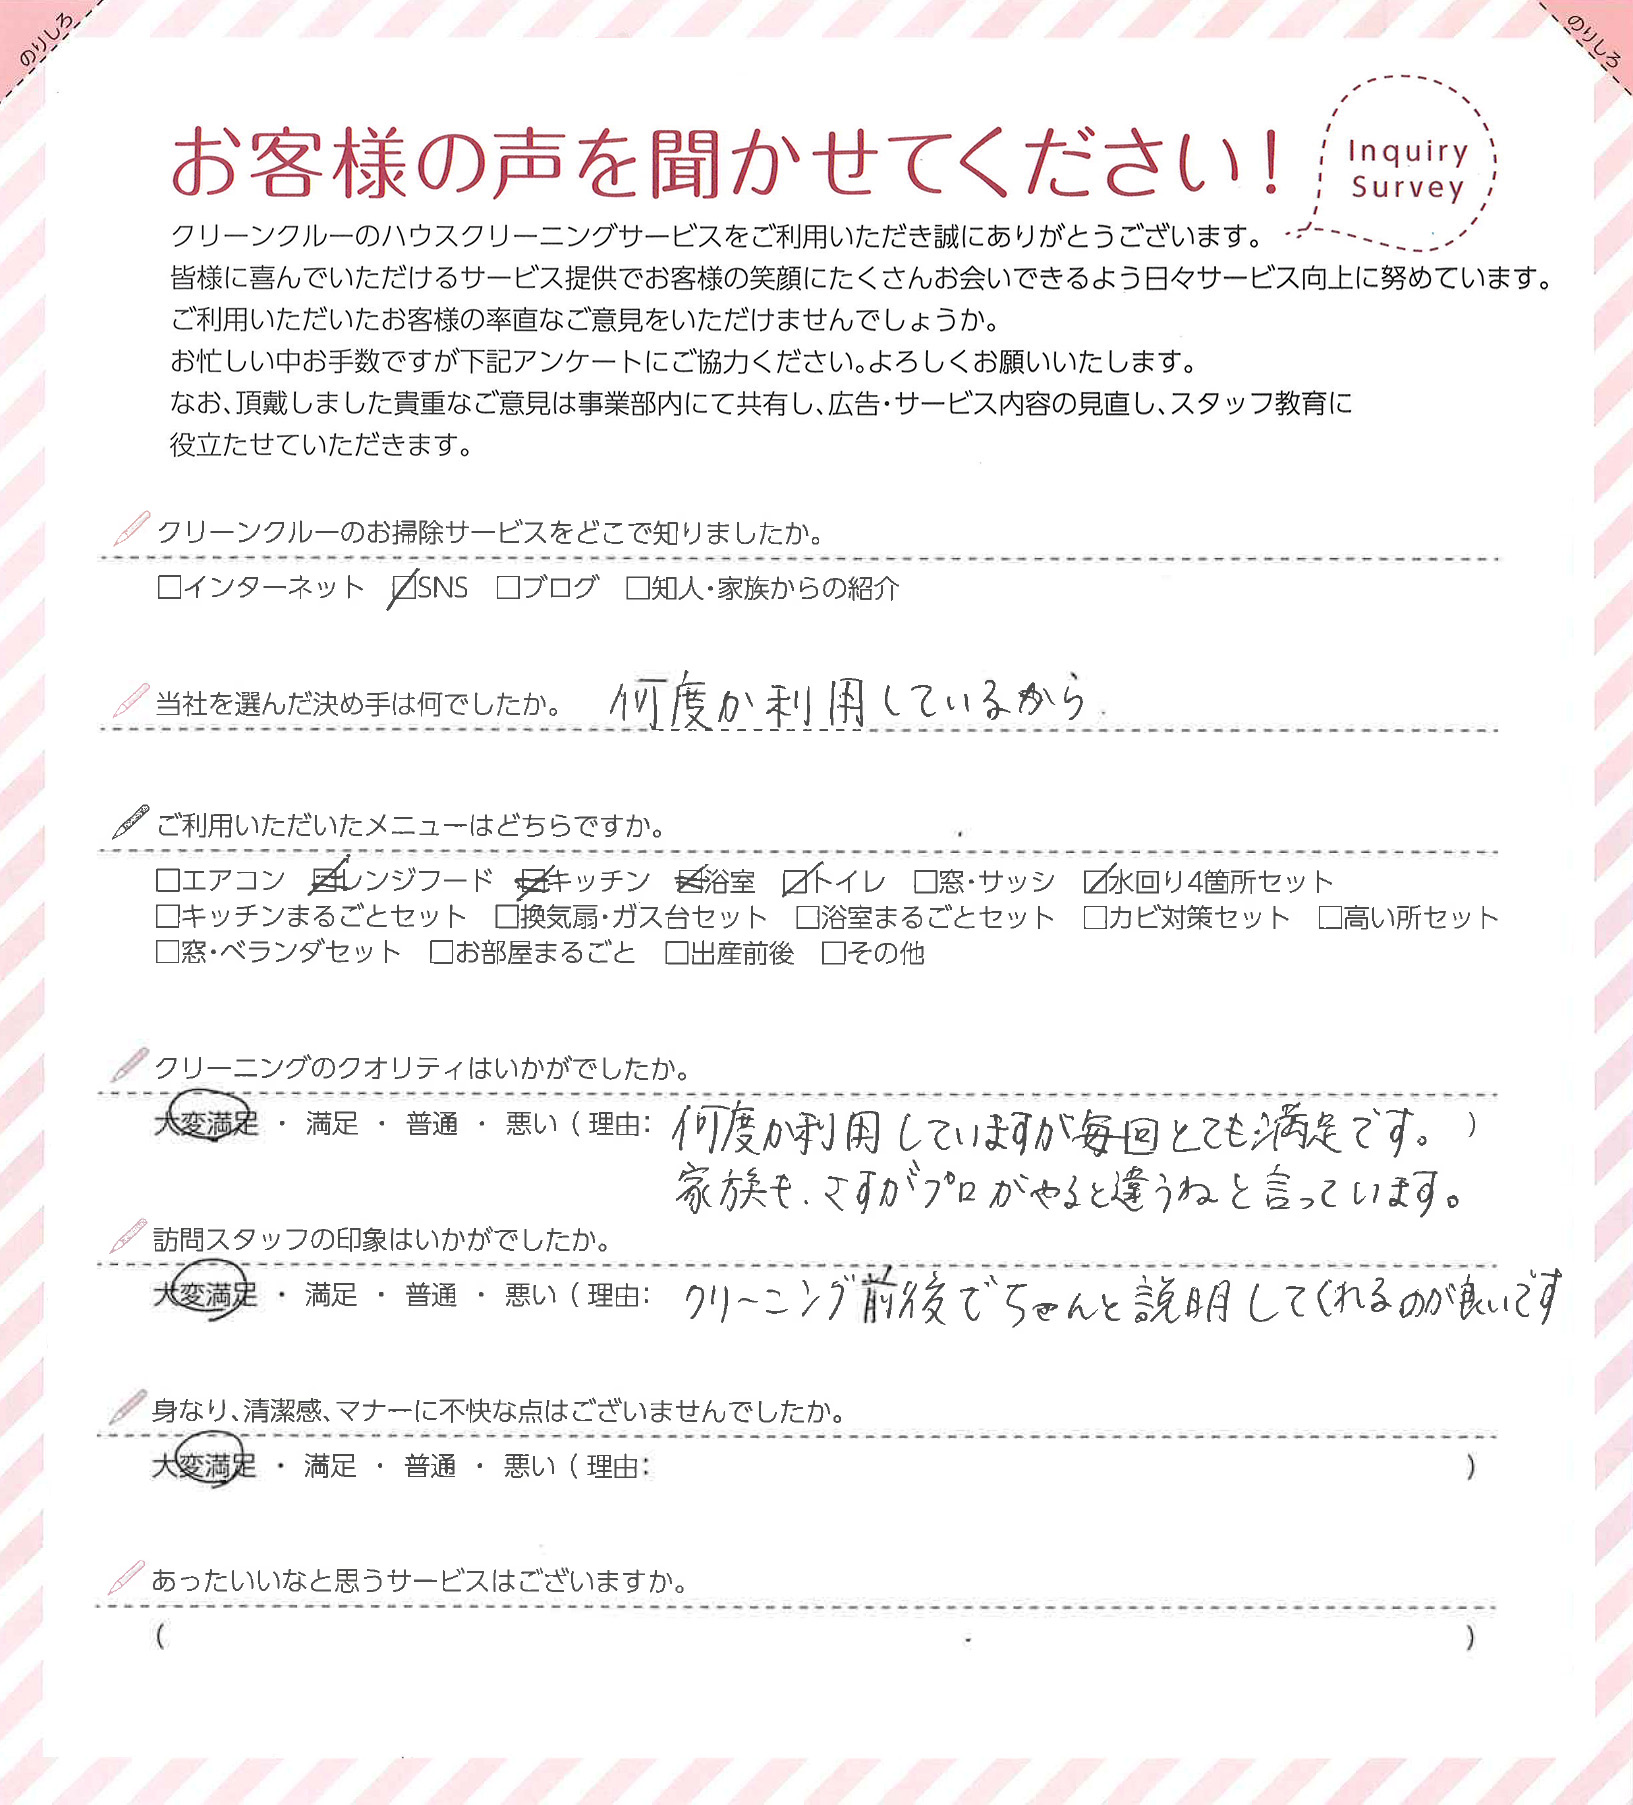 のりしろ
のりしろ
お客様の声を聞かせてください！
Inquiry
Survey
クリーンクルーのハウスクリーニングサービスをご利用いただき誠にありがとうございます。
皆様に喜んでいただけるサービス提供でお客様の笑顔にたくさんお会いできるよう日々サービス向上に努めています。
ご利用いただいたお客様の率直なご意見をいただけませんでしょうか。
お忙しい中お手数ですが下記アンケートにご協力ください。よろしくお願いいたします。
なお、頂戴しました貴重なご意見は事業部内にて共有し、広告・サービス内容の見直し、スタッフ教育に
役立たせていただきます。
クリーンクルーのお掃除サービスをどこで知りましたか。
□インターネット ☑SNS □ブログ □知人・家族からの紹介
当社を選んだ決め手は何でしたか。 何度か利用しているから.
ご利用いただいたメニューはどちらですか。
□エアコン ☑レンジフード ☑キッチン ☑浴室 ☑トイレ □窓・サッシ ☑水回り4箇所セット
□キッチンまるごとセット □換気扇・ガス台セット □浴室まるごとセット □カビ対策セット □高い所セット
□窓・ベランダセット □お部屋まるごと □出産前後 □その他
クリーニングのクオリティはいかがでしたか。
大変満足 ・ 満足 ・ 普通 ・ 悪い ( 理由： 何度か利用していますが毎回とても満足です。 )
家族も、さすがプロがやると違うねと言っています。
訪問スタッフの印象はいかがでしたか。
大変満足 ・ 満足 ・ 普通 ・ 悪い ( 理由： クリーニング前後でちゃんと説明してくれるのが良いです
身なり、清潔感、マナーに不快な点はございませんでしたか。
大変満足 ・ 満足 ・ 普通 ・ 悪い ( 理由： )
あったいいなと思うサービスはございますか。
( )